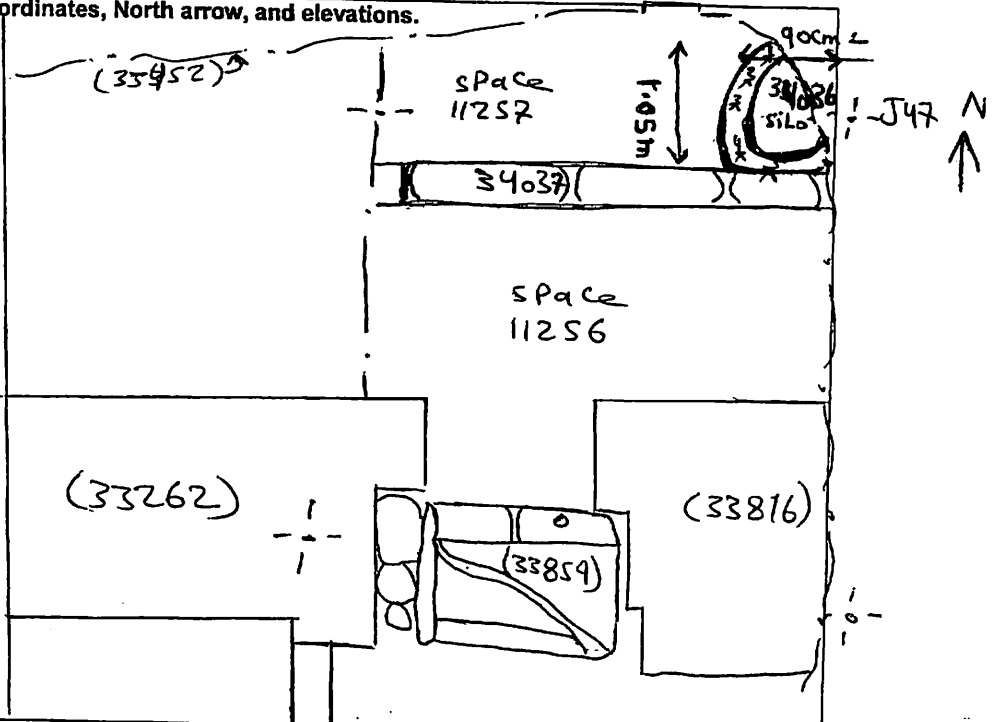 ordinates, North arrow, and elevations.
90cm
space
11257
1.05m
silo
J47
N
34037
space
11256
(33262)
(33816)
(33859)